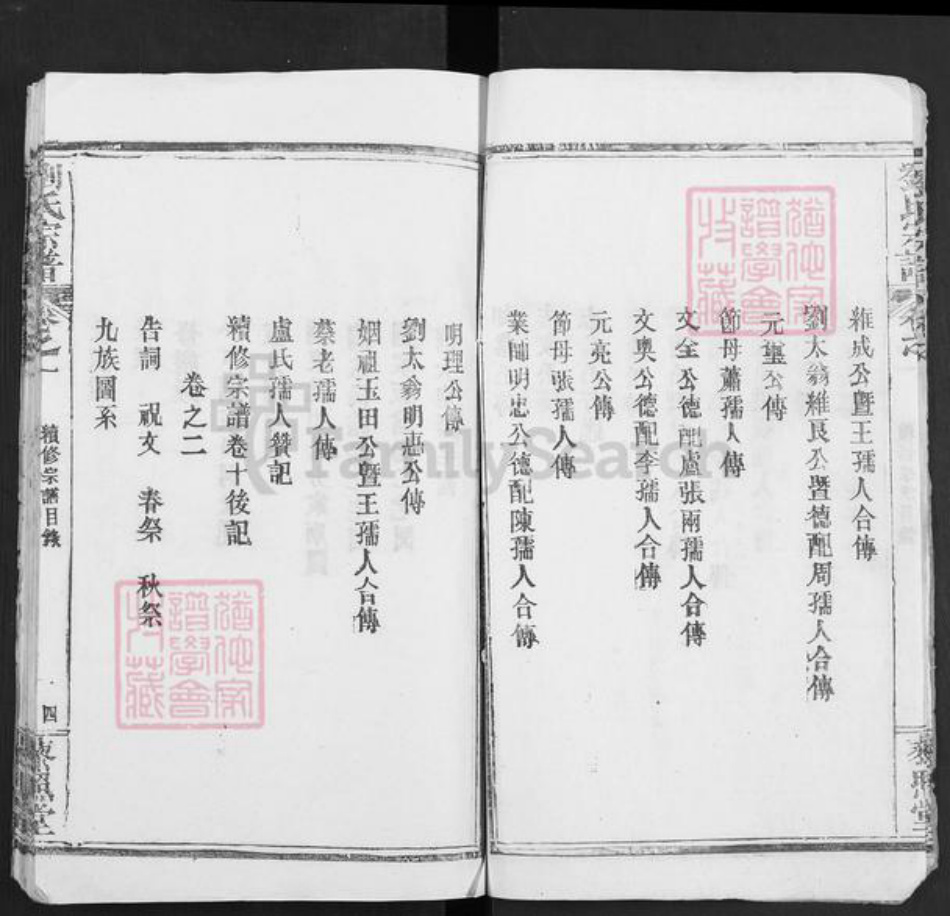 維成公暨王孺人合傳
劉太翁維艮公暨德配周孺人合傳
元璽公傳
節母蕭孺人傳
文全公德配盧張兩孺人合傳
文奧公德配李孺人合傳
元亮公傳
節母張孺人傳
業師明忠公德配陳孺人合傳
明理公傳
劉太翁明惠公傳
姻祖玉田公暨王孺人合傳
蔡老孺人傳
盧氏孺人贊記
續修宗譜卷十後記
卷之二
告詞 祝文 春祭 秋祭
九族圖系
劉氏宗譜
卷之一
續修宗譜目錄
四
藜照堂
劉氏宗譜
藜照堂
猶他家譜學會收藏
猶他家譜學會收藏
FamilySearch